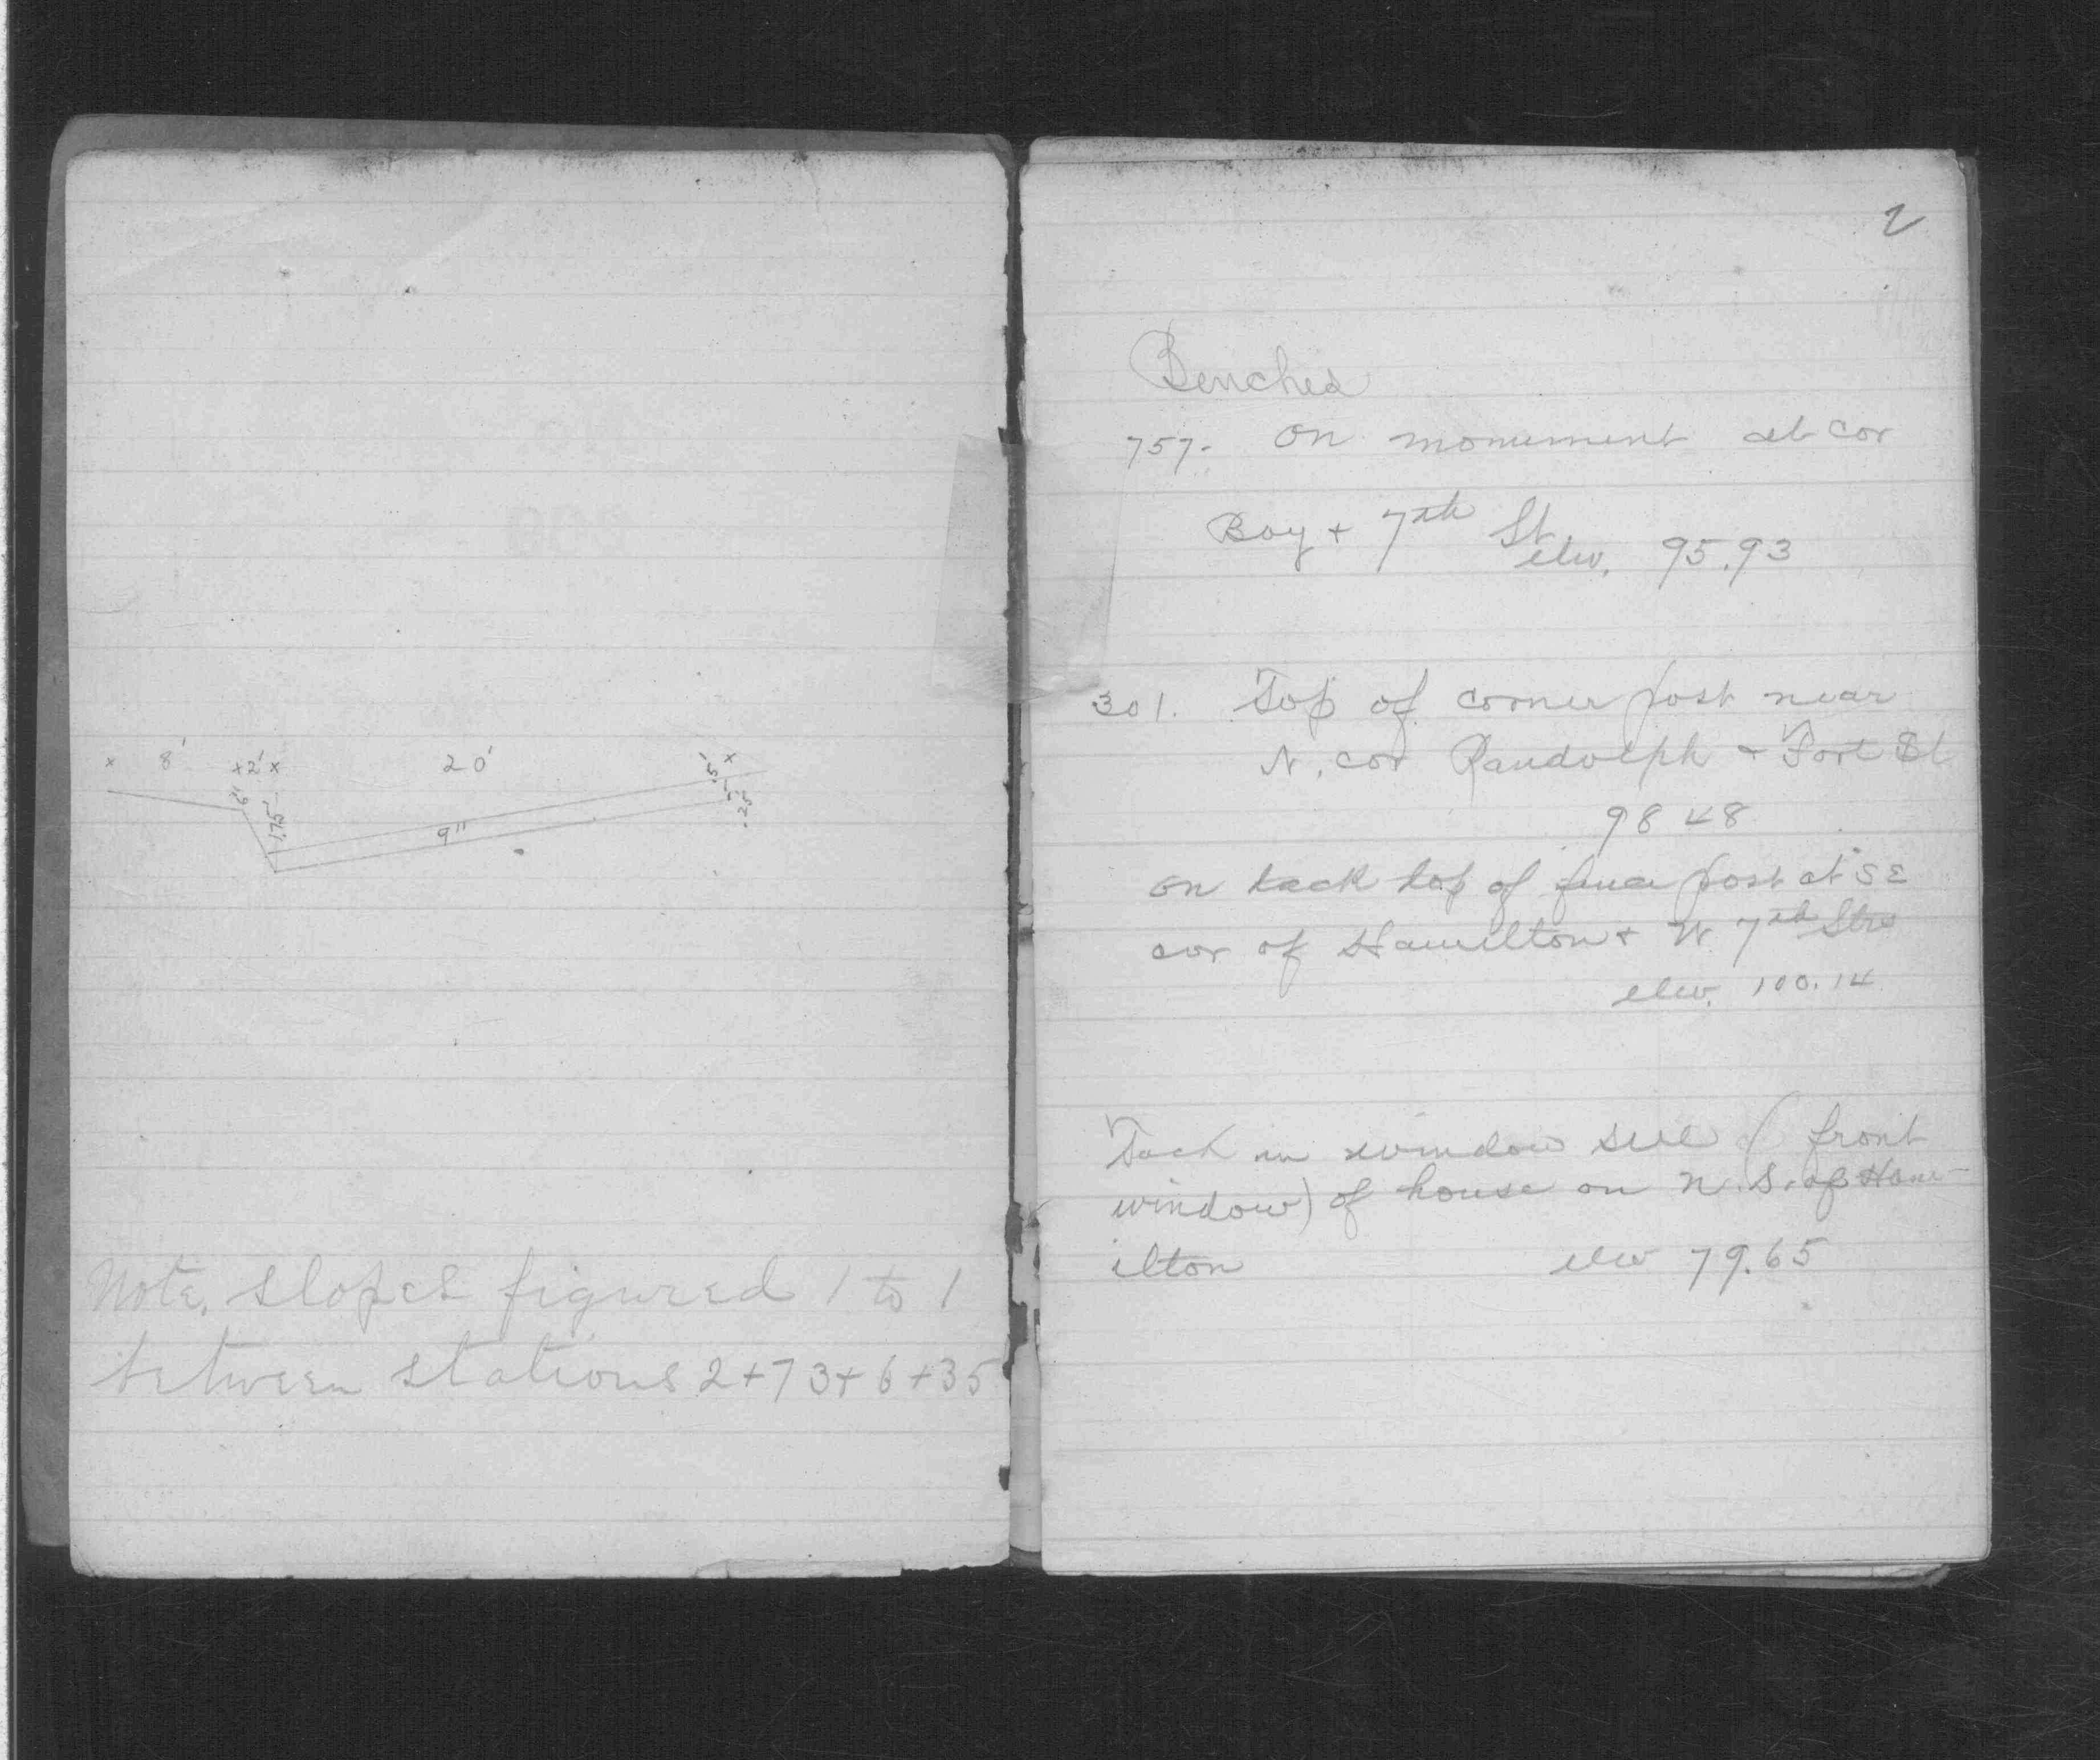 x 8' x 2' x 20' x
6" 1.75 9" .5' .5' .25
Note. slopes figured 1 to 1
between stations 2+73 + 6+35
2
Benches
757. on monument at cor
Bay + 7th St
elev. 95.93
301. Top of corner post near
N. cor Randolph + Fort St
98 48
on tack top of fence post at SE
cor of Hamilton + W 7th Sts
elev. 100.14
Tack in window sill (front
window) of house on N.S. of Ham-
ilton elev 79.65